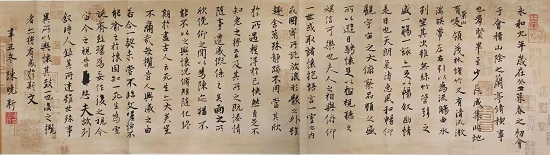 永和九年歲在癸丑暮春之初會
于會稽山陰之蘭亭脩禊事
也羣賢畢至少長咸集此地
有崇山峻領茂林脩竹又有清流激
湍暎帶左右引以為流觴曲水
列坐其次雖無絲竹管弦之
盛一觴一詠亦足以暢敘幽情
是日也天朗氣清惠風和暢仰
觀宇宙之大俯察品類之盛
所以遊目騁懷足以極視聽之
娛信可樂也夫人之相與俯仰
一世或取諸懷抱悟言一室之內
或因寄所託放浪形骸之外雖
趣舍萬殊靜躁不同當其欣
於所遇暫得於己怏然自足不
知老之將至及其所之既惓情
隨事遷感慨係之矣向之所
欣俛仰之閒以為陳迹猶不
能不以之興懷況脩短隨化終
期於盡古人云死生亦大矣豈
不痛哉每攬昔人興感之由
若合一契未嘗不臨文嗟悼不
能喻之於懷固知一死生為虛
誕齊彭殤為妄作後之視今
亦由今之視昔悲夫故列
敘時人錄其所述雖世殊事
異所以興懷其致一也後之攬
者亦將有感於斯文
辛丑冬陳